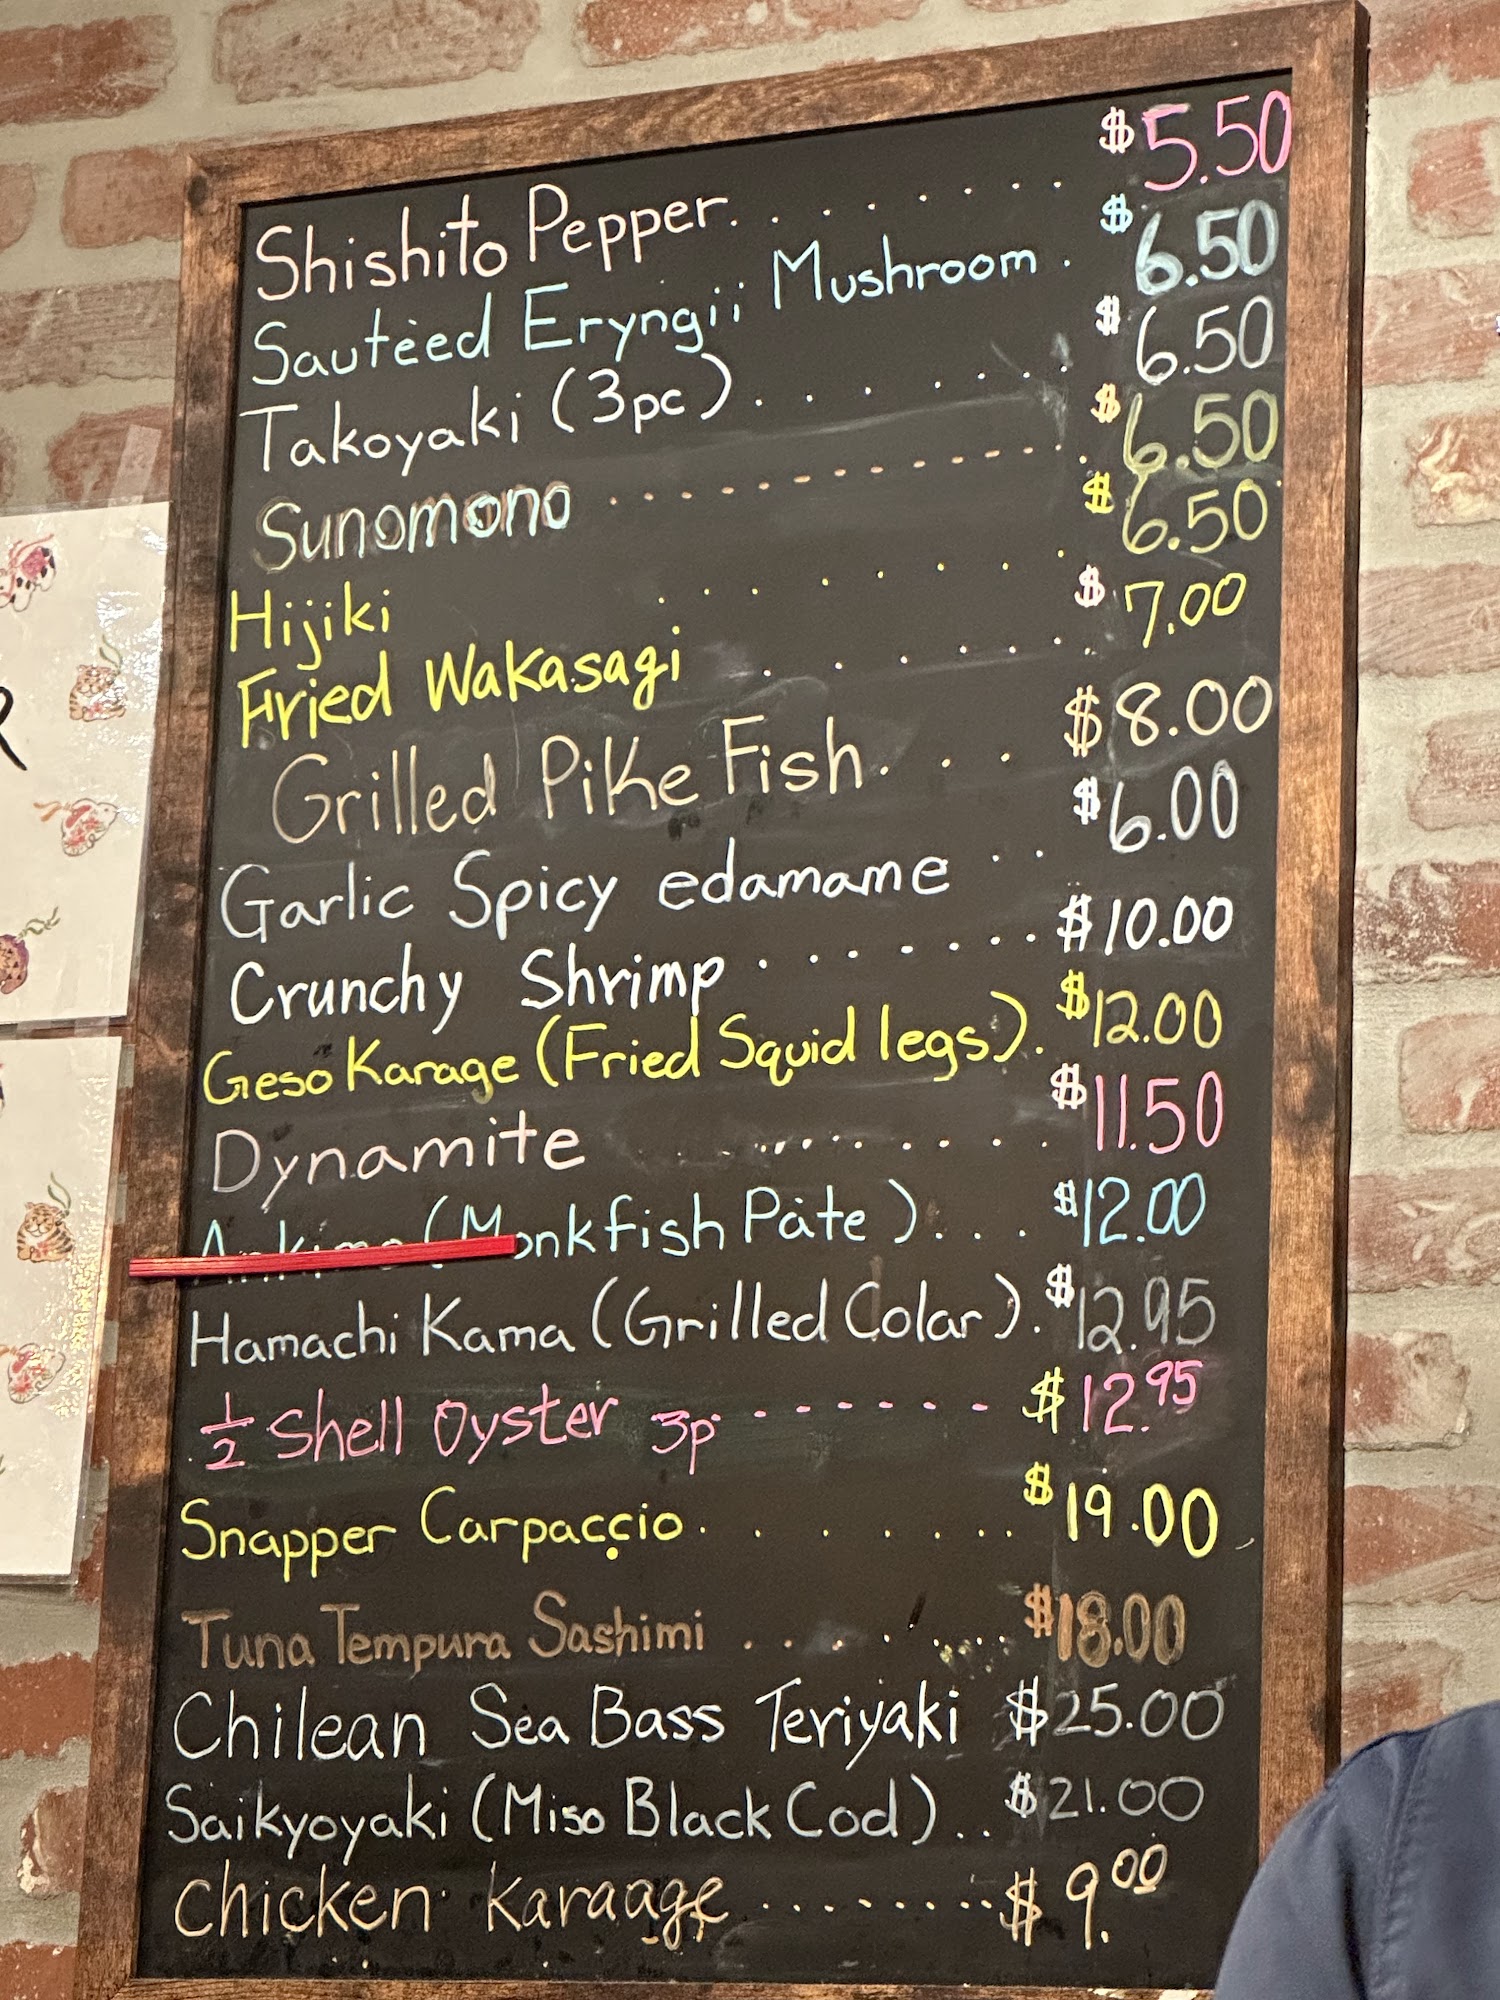 Shishito Pepper. . . . . . . $5.50
Sautéed Eryngii Mushroom . $6.50
Takoyaki (3pc) . . . . . . . $6.50
Sunomono . . . . . . . . . . . . . $6.50
Hijiki . . . . . . . $6.50
Fried Wakasagi . . . . . . $7.00
Grilled Pike Fish. . . $8.00
Garlic Spicy edamame . . $6.00
Crunchy Shrimp . . . . . . . $10.00
Geso Karage (Fried Squid legs). $12.00
Dynamite . . . . . . . . . . $11.50
(Monkfish Pate) . . . $12.00
Hamachi Kama (Grilled Colar). $12.95
1/2 Shell Oyster 3p - - - - - - - $12.95
Snapper Carpaccio . . . . . . . $19.00
Tuna Tempura Sashimi . . . . . . . . $18.00
Chilean Sea Bass Teriyaki $25.00
Saikyoyaki (Miso Black Cod) . . $21.00
Chicken Karaage . . . . . . . . . $9.00